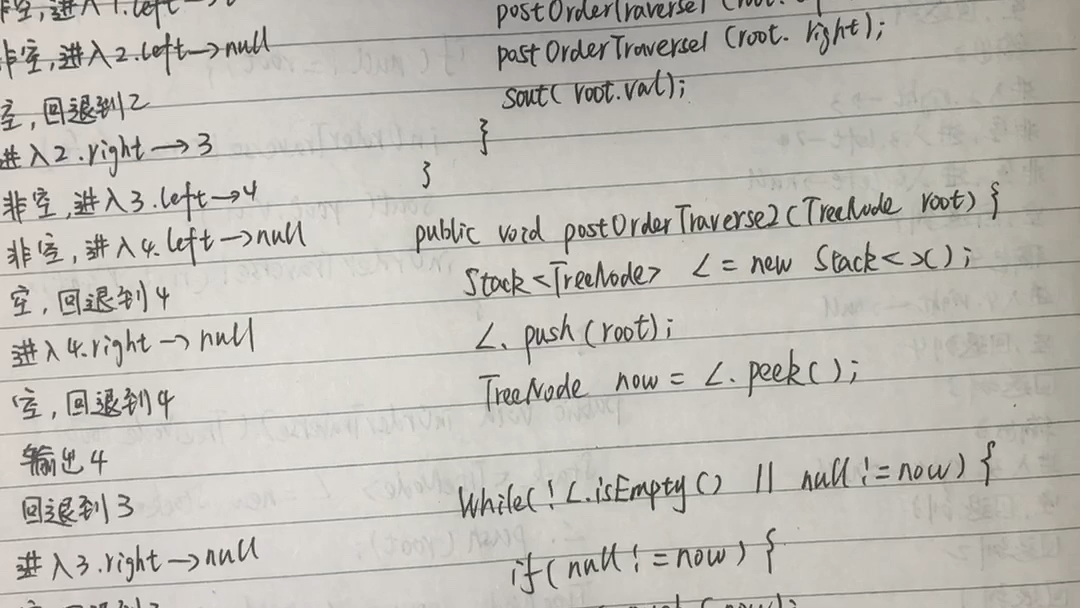 非空,进入1.left→
非空,进入2.left→null
空,回退到2
进入2.right→3
非空,进入3.left→4
非空,进入4.left→null
空,回退到4
进入4.right→null
空,回退到4
输出4
回退到3
进入3.right→null
postOrderTraverse1 (root.
postOrderTraverse1 (root. right);
sout( root.val);
}
}
public void postOrderTraverse2(TreeNode root) {
Stack<TreeNode> L = new Stack<>();
L. push(root);
TreeNode now = L. peek();
While( ! L.isEmpty() || null != now) {
if( null != now) {